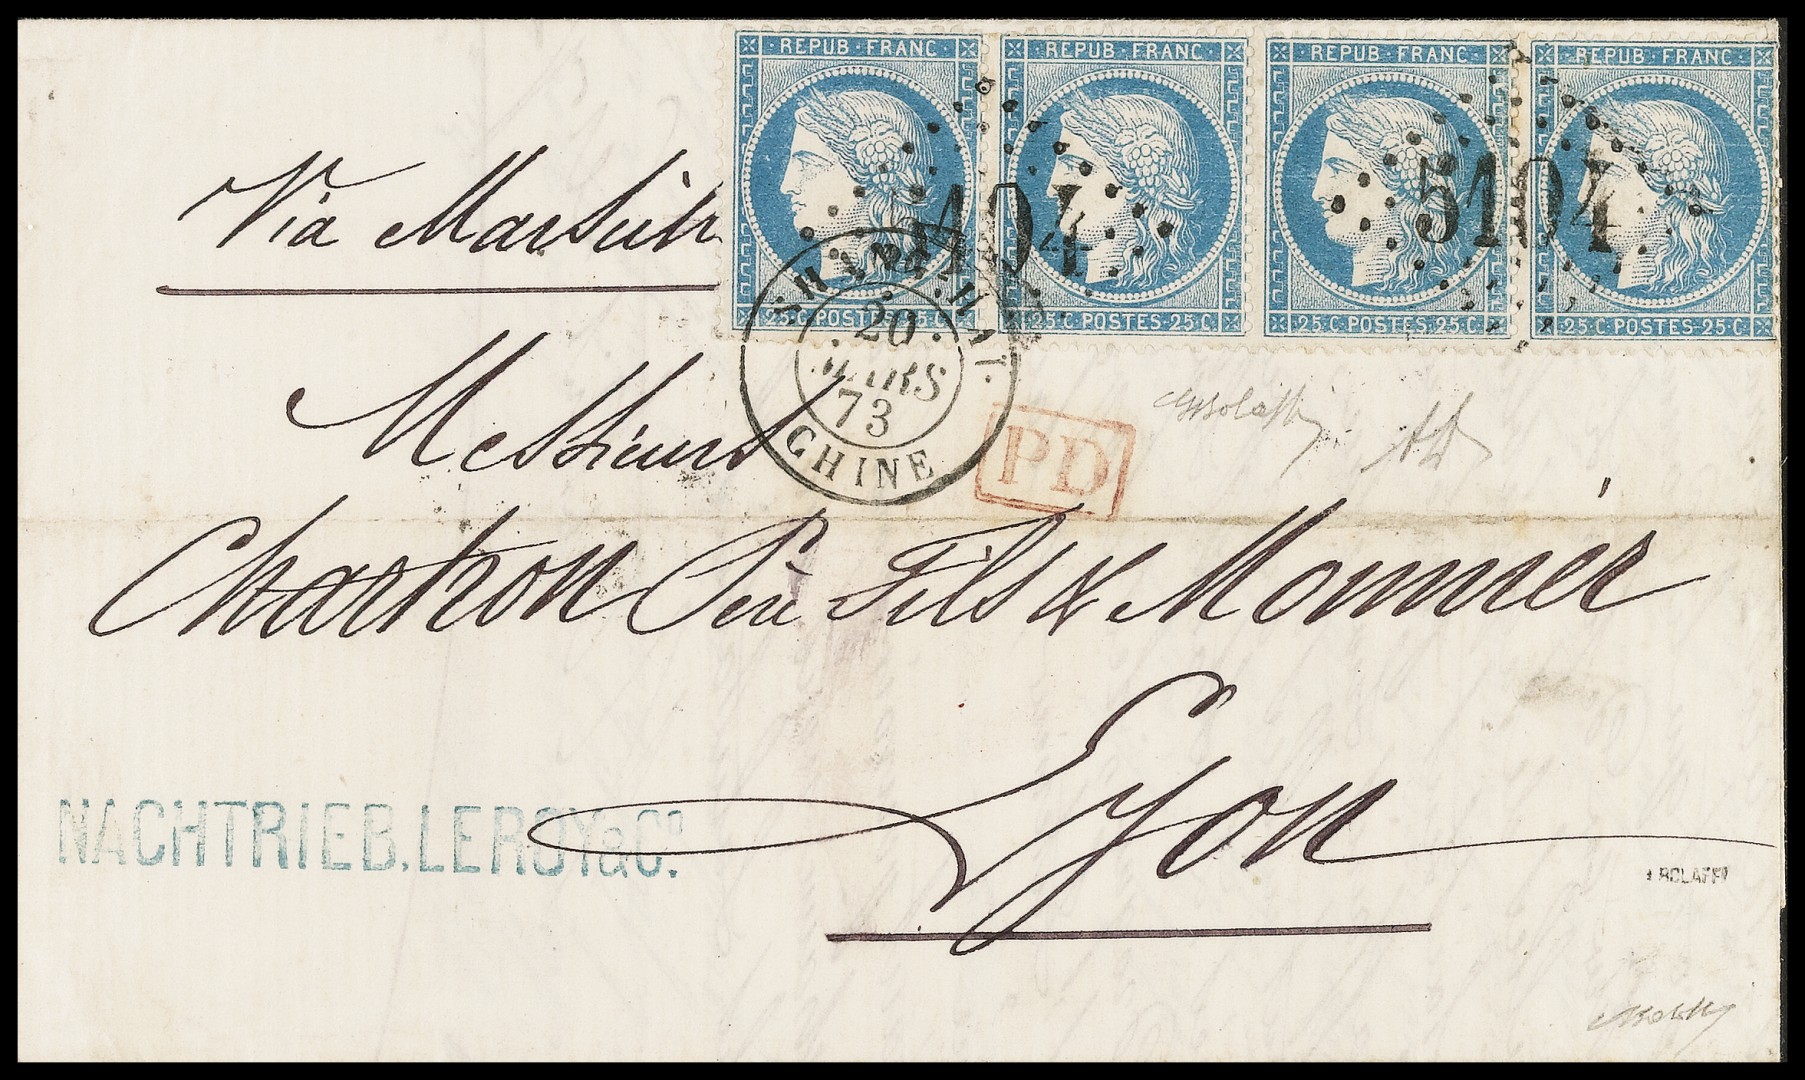 REPUB·FRANC REPUB·FRANC REPUB·FRANC REPUB·FRANC
Via Marseille
5104
25·C·POSTES·25·C 25·C·POSTES·25·C 25·C·POSTES·25·C 25·C·POSTES·25·C
20
MARS
73
CHINE
PD
Messieurs
Chartron Père Fils & Monnier
Lyon
NACHTRIEB.LEROY&Cº.
BOLAFFI